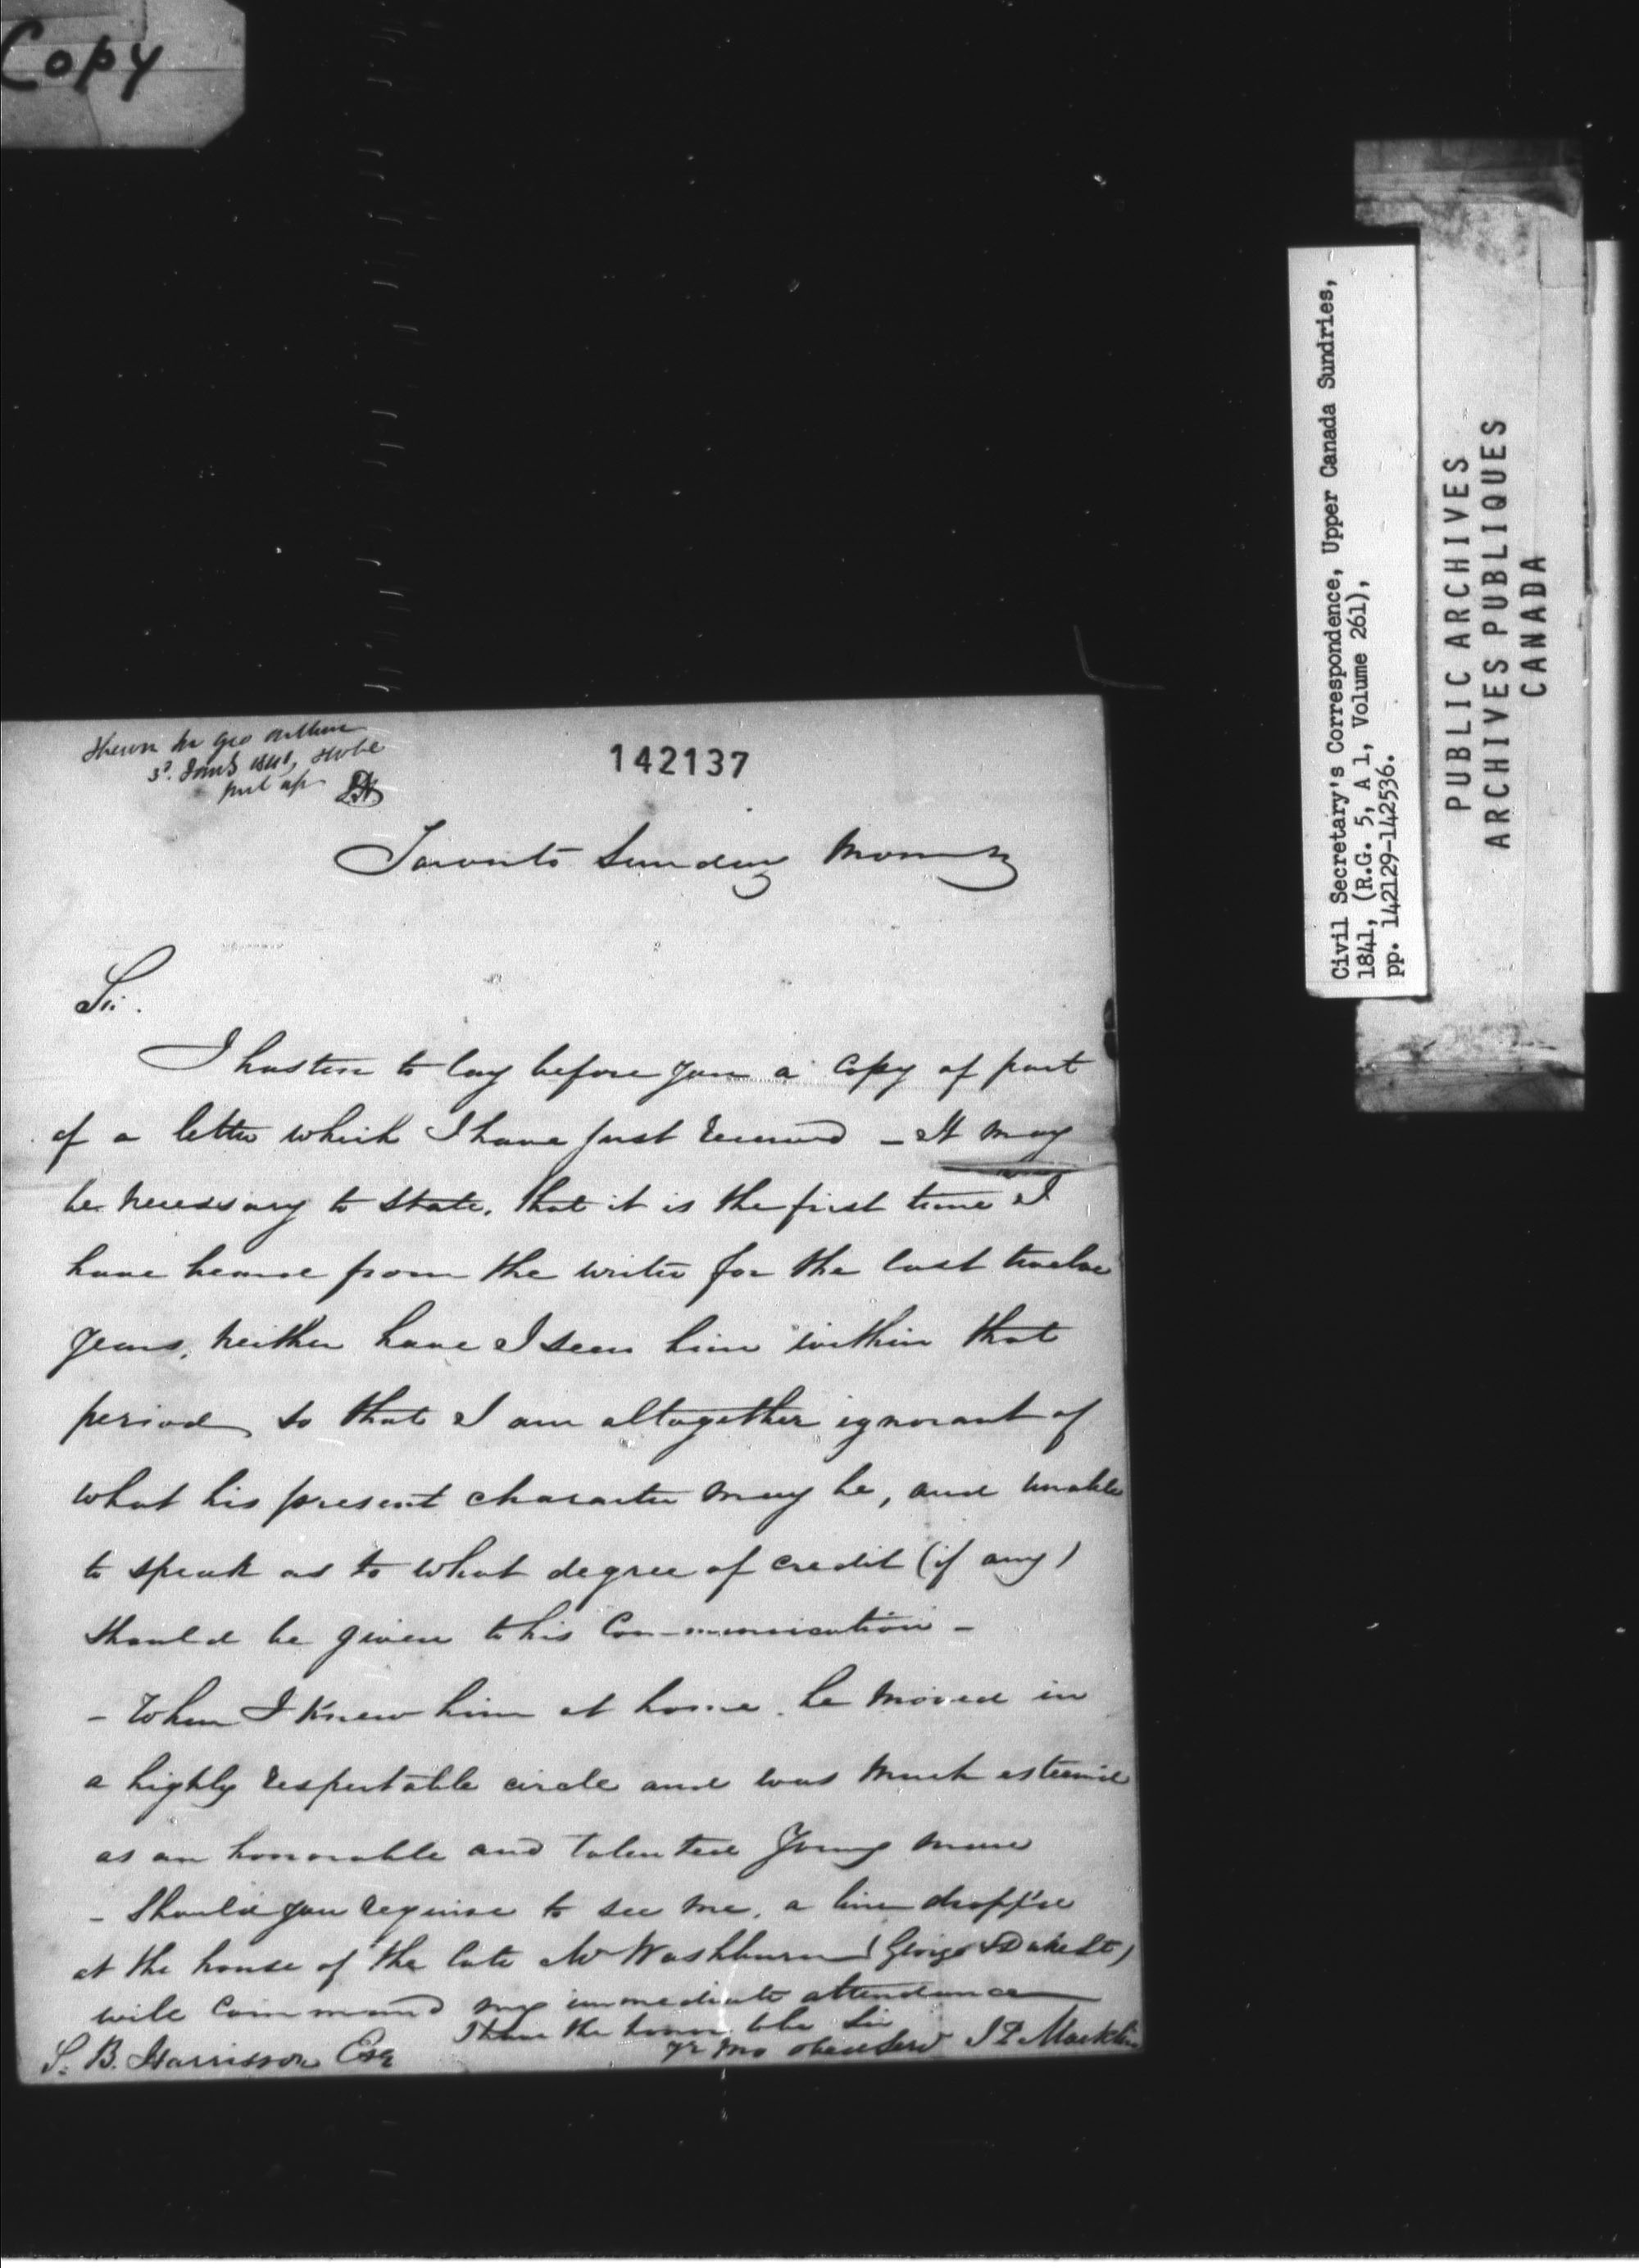 Copy
142137
put up
Toronto Sunday Morn
Sir.
I hasten to lay before you a copy of part
of a letter which I have just received – It may
be necessary to state, that it is the first time I
have heard from the writer for the last twelve
years, neither have I seen him within that
period, so that I am altogether ignorant of
what his present character may be, and unable
to speak as to what degree of credit (if any)
should be given to his Communication –
– When I knew him at home, he moved in
a highly respectable circle and was much esteemed
as an honorable and talented young man
– Should you require to see me, a line dropped
at the house of the late Mr Washburn (George & Duke St)
will command my immediate attendance
I have the honor to be Sir
Yr Mo obed Serv J P Macklin
S. B. Harrison Esq
Civil Secretary's Correspondence, Upper Canada Sundries,
1841, (R.G. 5, A 1, Volume 261),
pp. 142129-142536.
PUBLIC ARCHIVES
ARCHIVES PUBLIQUES
CANADA